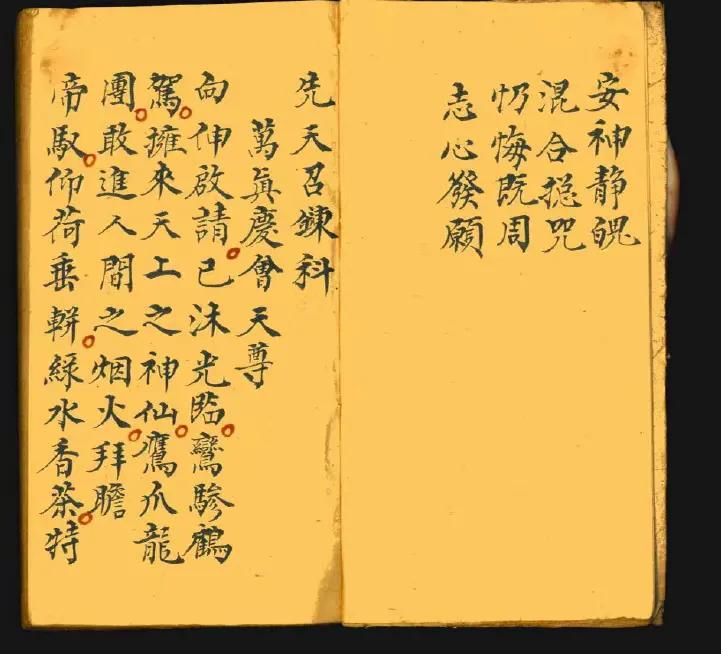 安神静魄
混合捴咒
忉悔既周
志心發願
先天召鍊科
萬眞慶會天尊
向伸啟請已沐光臨鸞驂鶴
駕擁來天上之神仙鷹爪龍
團敢進人間之烟火拜瞻
帝馭仰荷垂軿綠水香茶特